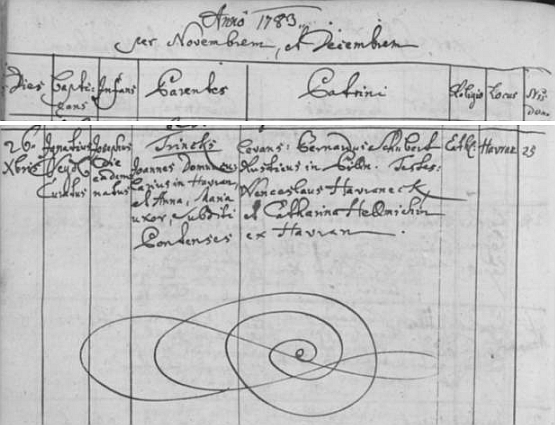 Anno 1783
per Novembrem, et Decembrem
Dies
Bapti-
zans
Infans
Parentes
Patrini
Religio
Locus
Nrus
Dom.
26.
Xbris
Ignatius
Seydl
Curatus
Josephus
Die
eodem
natus
Trincks
Joannes Dominicus
in Havran,
et Anna Maria
uxor, subditi
Levans: Bernardus Schubert
Rusticus in Testes:
Wenceslaus Havraneck
et Catharina Hellmichin
ex Havran
Cath:
Havran
23